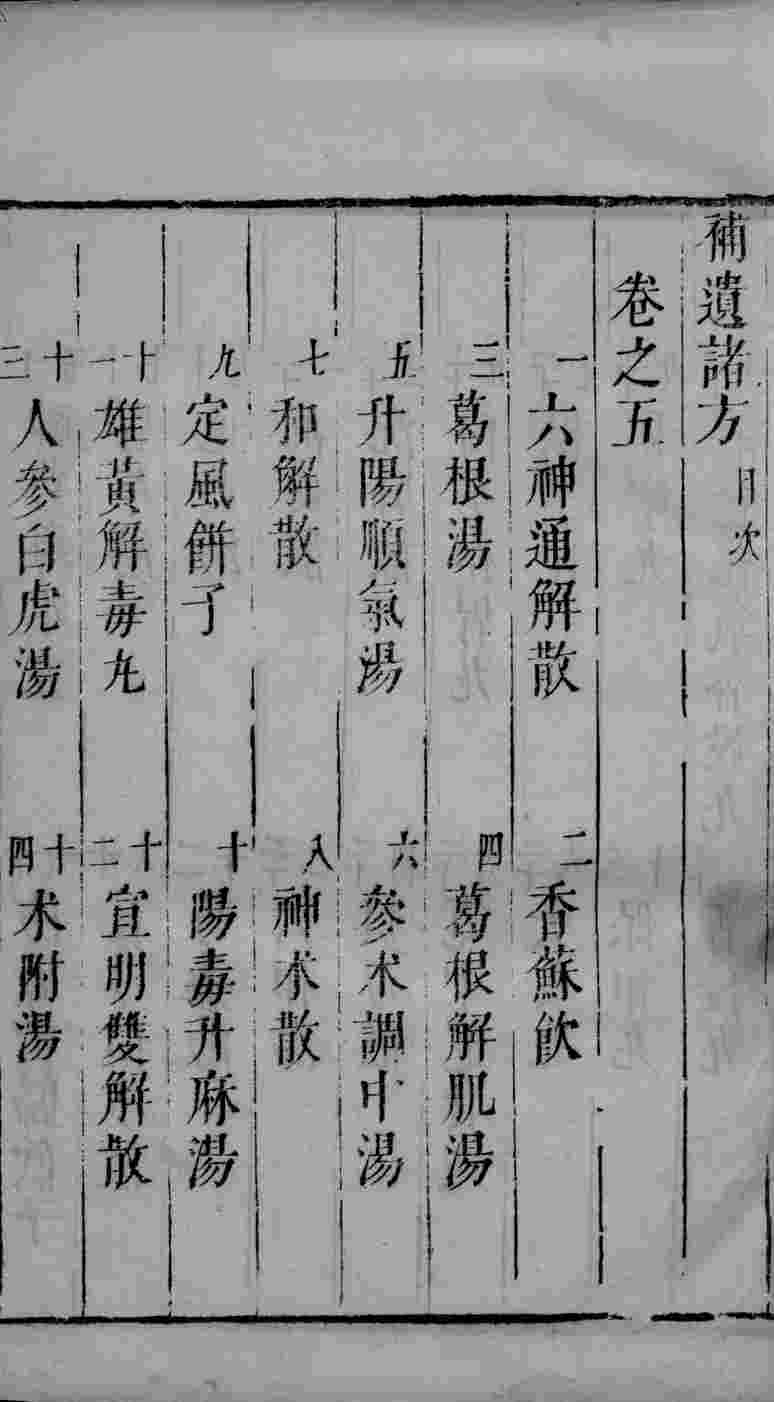 補遺諸方 目次
卷之五
一 六神通解散 二 香蘇飲
三 葛根湯 四 葛根解肌湯
五 升陽順氣湯 六 參朮調中湯
七 和解散 八 神朮散
九 定風餅子 十 陽毒升麻湯
十一 雄黃解毒丸 十二 宣明雙解散
十三 人參白虎湯 十四 朮附湯